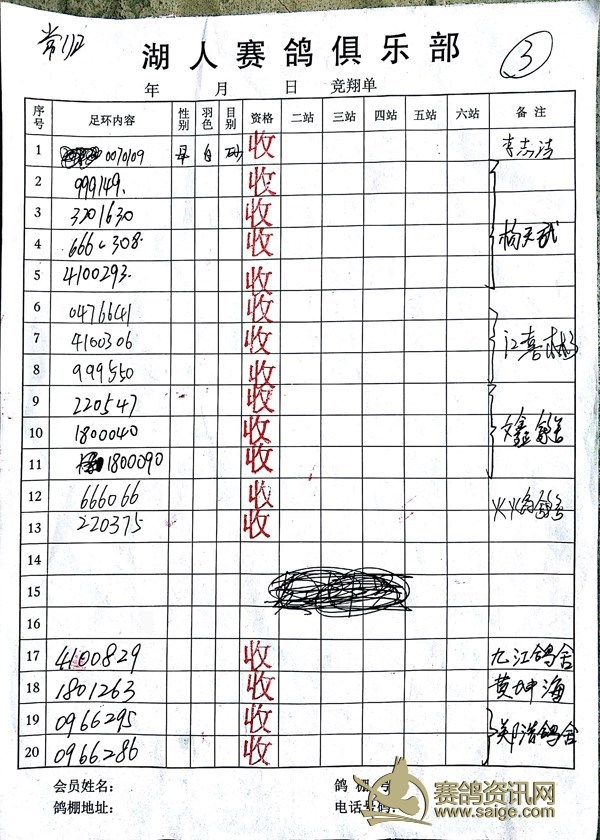 ③
湖人赛鸽俱乐部
年 月 日 竞翔单
序号 足环内容 性别 羽色 目别 资格 二站 三站 四站 五站 六站 备注
1 0070109 收
2 999149. 收
3 3201630 收
4 收
5 4100293 收
6 0476641 收
7 4100306 收
8 999550 收
9 220547 收
10 1800040 收 鑫鸽舍
11 1800090 收
12 666066 收
13 220375 收
14
15
16
17 4100829 收 九江鸽舍
18 1801263 收 黄坤海
19 0966295 收
20 0966286 收 浩鸽舍
会员姓名: 鸽棚号
鸽棚地址: 电话号码:
赛鸽资讯网
www.saige.com